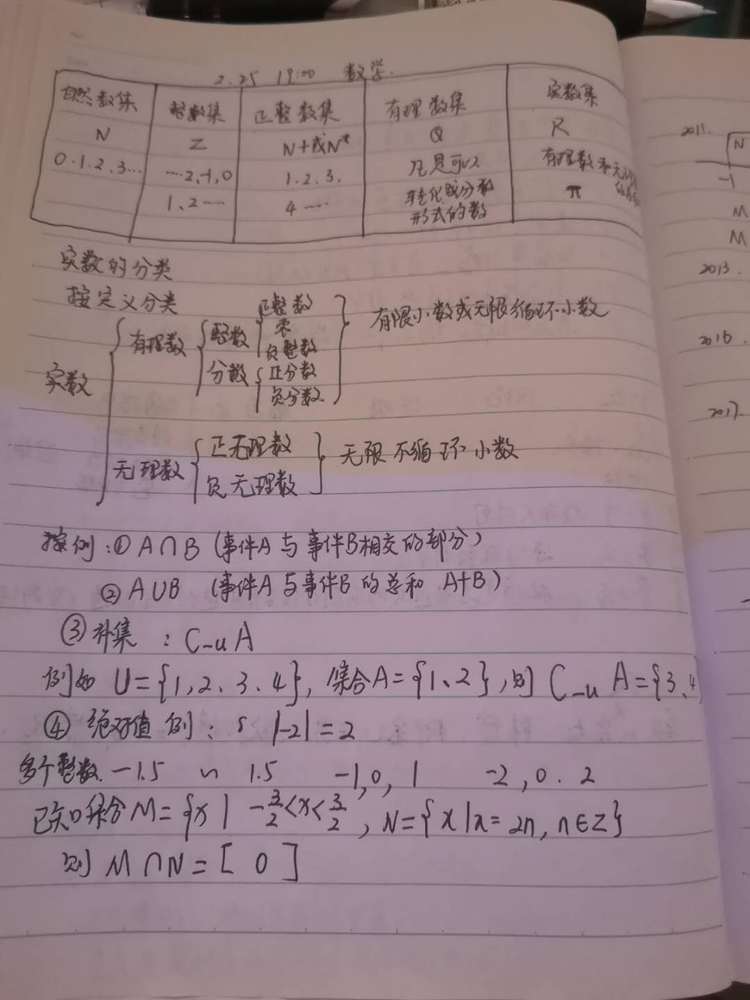 2.25 19:00 数学.
自然数集 整数集 正整数集 有理数集 实数集
N Z N+或N* Q R
0.1.2.3... ...-2,-1,0 1.2.3. 凡是可以 有理数和无理数
1、2... 4... 转化成分数 π
形式的数
实数的分类
按定义分类
正整数
零
有理数 整数 负整数 有限小数或无限循环小数
分数 正分数
负分数
实数
正无理数
无理数 无限不循环小数
负无理数
按例:① A∩B (事件A与事件B相交的部分)
② A∪B (事件A与事件B的总和 A+B)
③ 补集 : C_u A
例如 U={1,2、3、4}, 集合A={1、2},则 C_u A={3、4
④ 绝对值 例: |-2|=2
多个整数 -1.5 ~ 1.5 -1,0,1 -2,0.2
已知集合M={x| -3/2<x<3/2, N={x|x=2n, n∈Z}
则 M∩N=[ 0 ]
2011.
N
-1
M
M
2013.
2016.
2017.